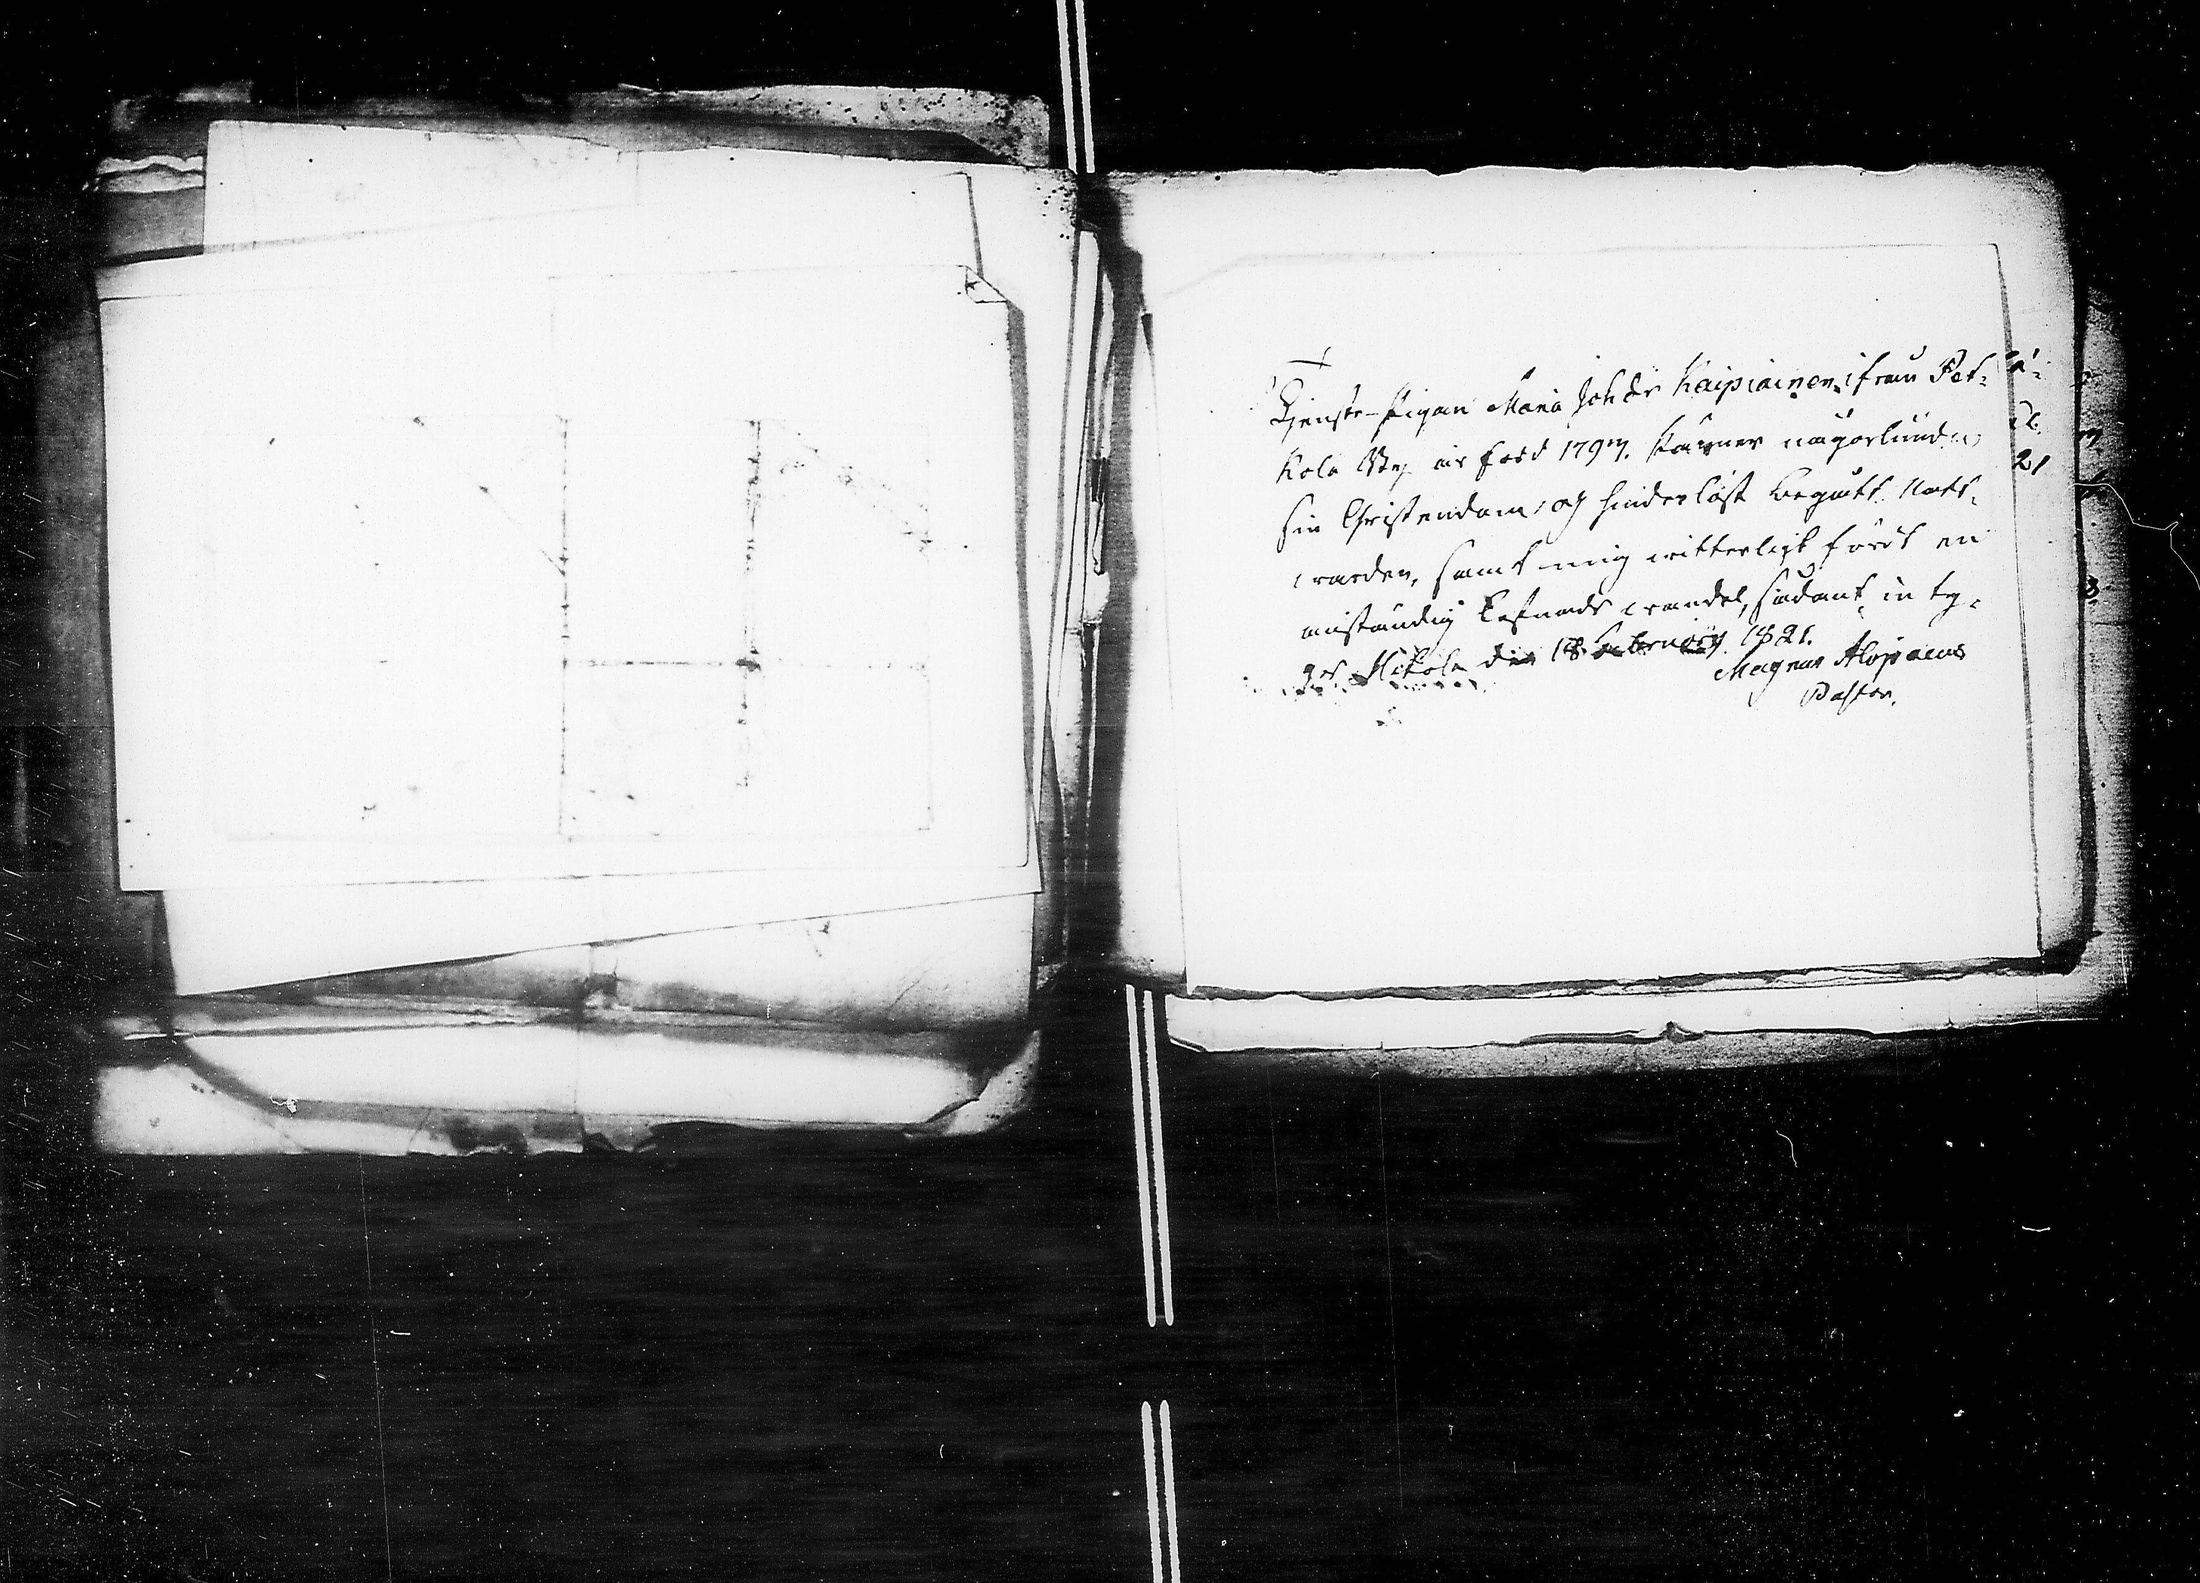 Tjenste-Pigan Maria Johds Kaipiainen, ifrån Pet=
kola By är född 1797. känner någorlunda
sin Christendom, och hinderlöst begått Natt=
varden, samt mig witterligt fördt en
anständig Lefnads wandel, sådant in ty=
St Mikole den 18 Februarij 1821.
Magnus Alopaeus
Pastor.
21